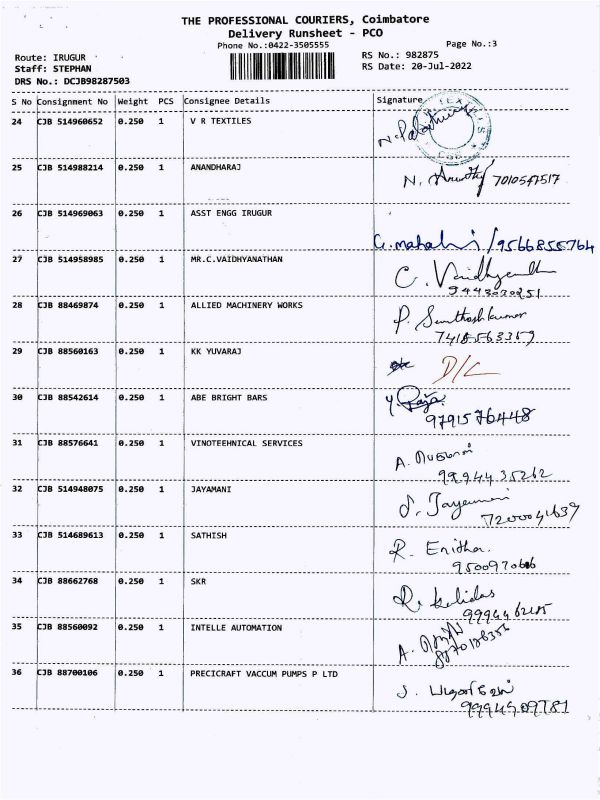 THE PROFESSIONAL COURIERS, Coimbatore
Delivery Runsheet - PCO
Phone No.:0422-3505555
Page No.:3
Route: IRUGUR
RS No.: 982875
Staff: STEPHAN
RS Date: 20-Jul-2022
DRS No.: DCJB98287503
S No Consignment No Weight PCS Consignee Details Signature
24 CJB 514960652 0.250 1 V R TEXTILES
25 CJB 514988214 0.250 1 ANANDHARAJ N. 7010547517
26 CJB 514969063 0.250 1 ASST ENGG IRUGUR
G. / 9566855764
27 CJB 514958985 0.250 1 MR.C.VAIDHYANATHAN C. Vaidhyanathan
9443030251
28 CJB 88469874 0.250 1 ALLIED MACHINERY WORKS P. Santhoshkumar
7418563359
29 CJB 88560163 0.250 1 KK YUVARAJ D/L
30 CJB 88542614 0.250 1 ABE BRIGHT BARS
9791576448
31 CJB 88576641 0.250 1 VINOTEEHNICAL SERVICES A.
9994435262
32 CJB 514948075 0.250 1 JAYAMANI J. Jayamani
7200041639
33 CJB 514689613 0.250 1 SATHISH R.
34 CJB 88662768 0.250 1 SKR R. kalidas
35 CJB 88560092 0.250 1 INTELLE AUTOMATION A.
36 CJB 88700106 0.250 1 PRECICRAFT VACCUM PUMPS P LTD J.